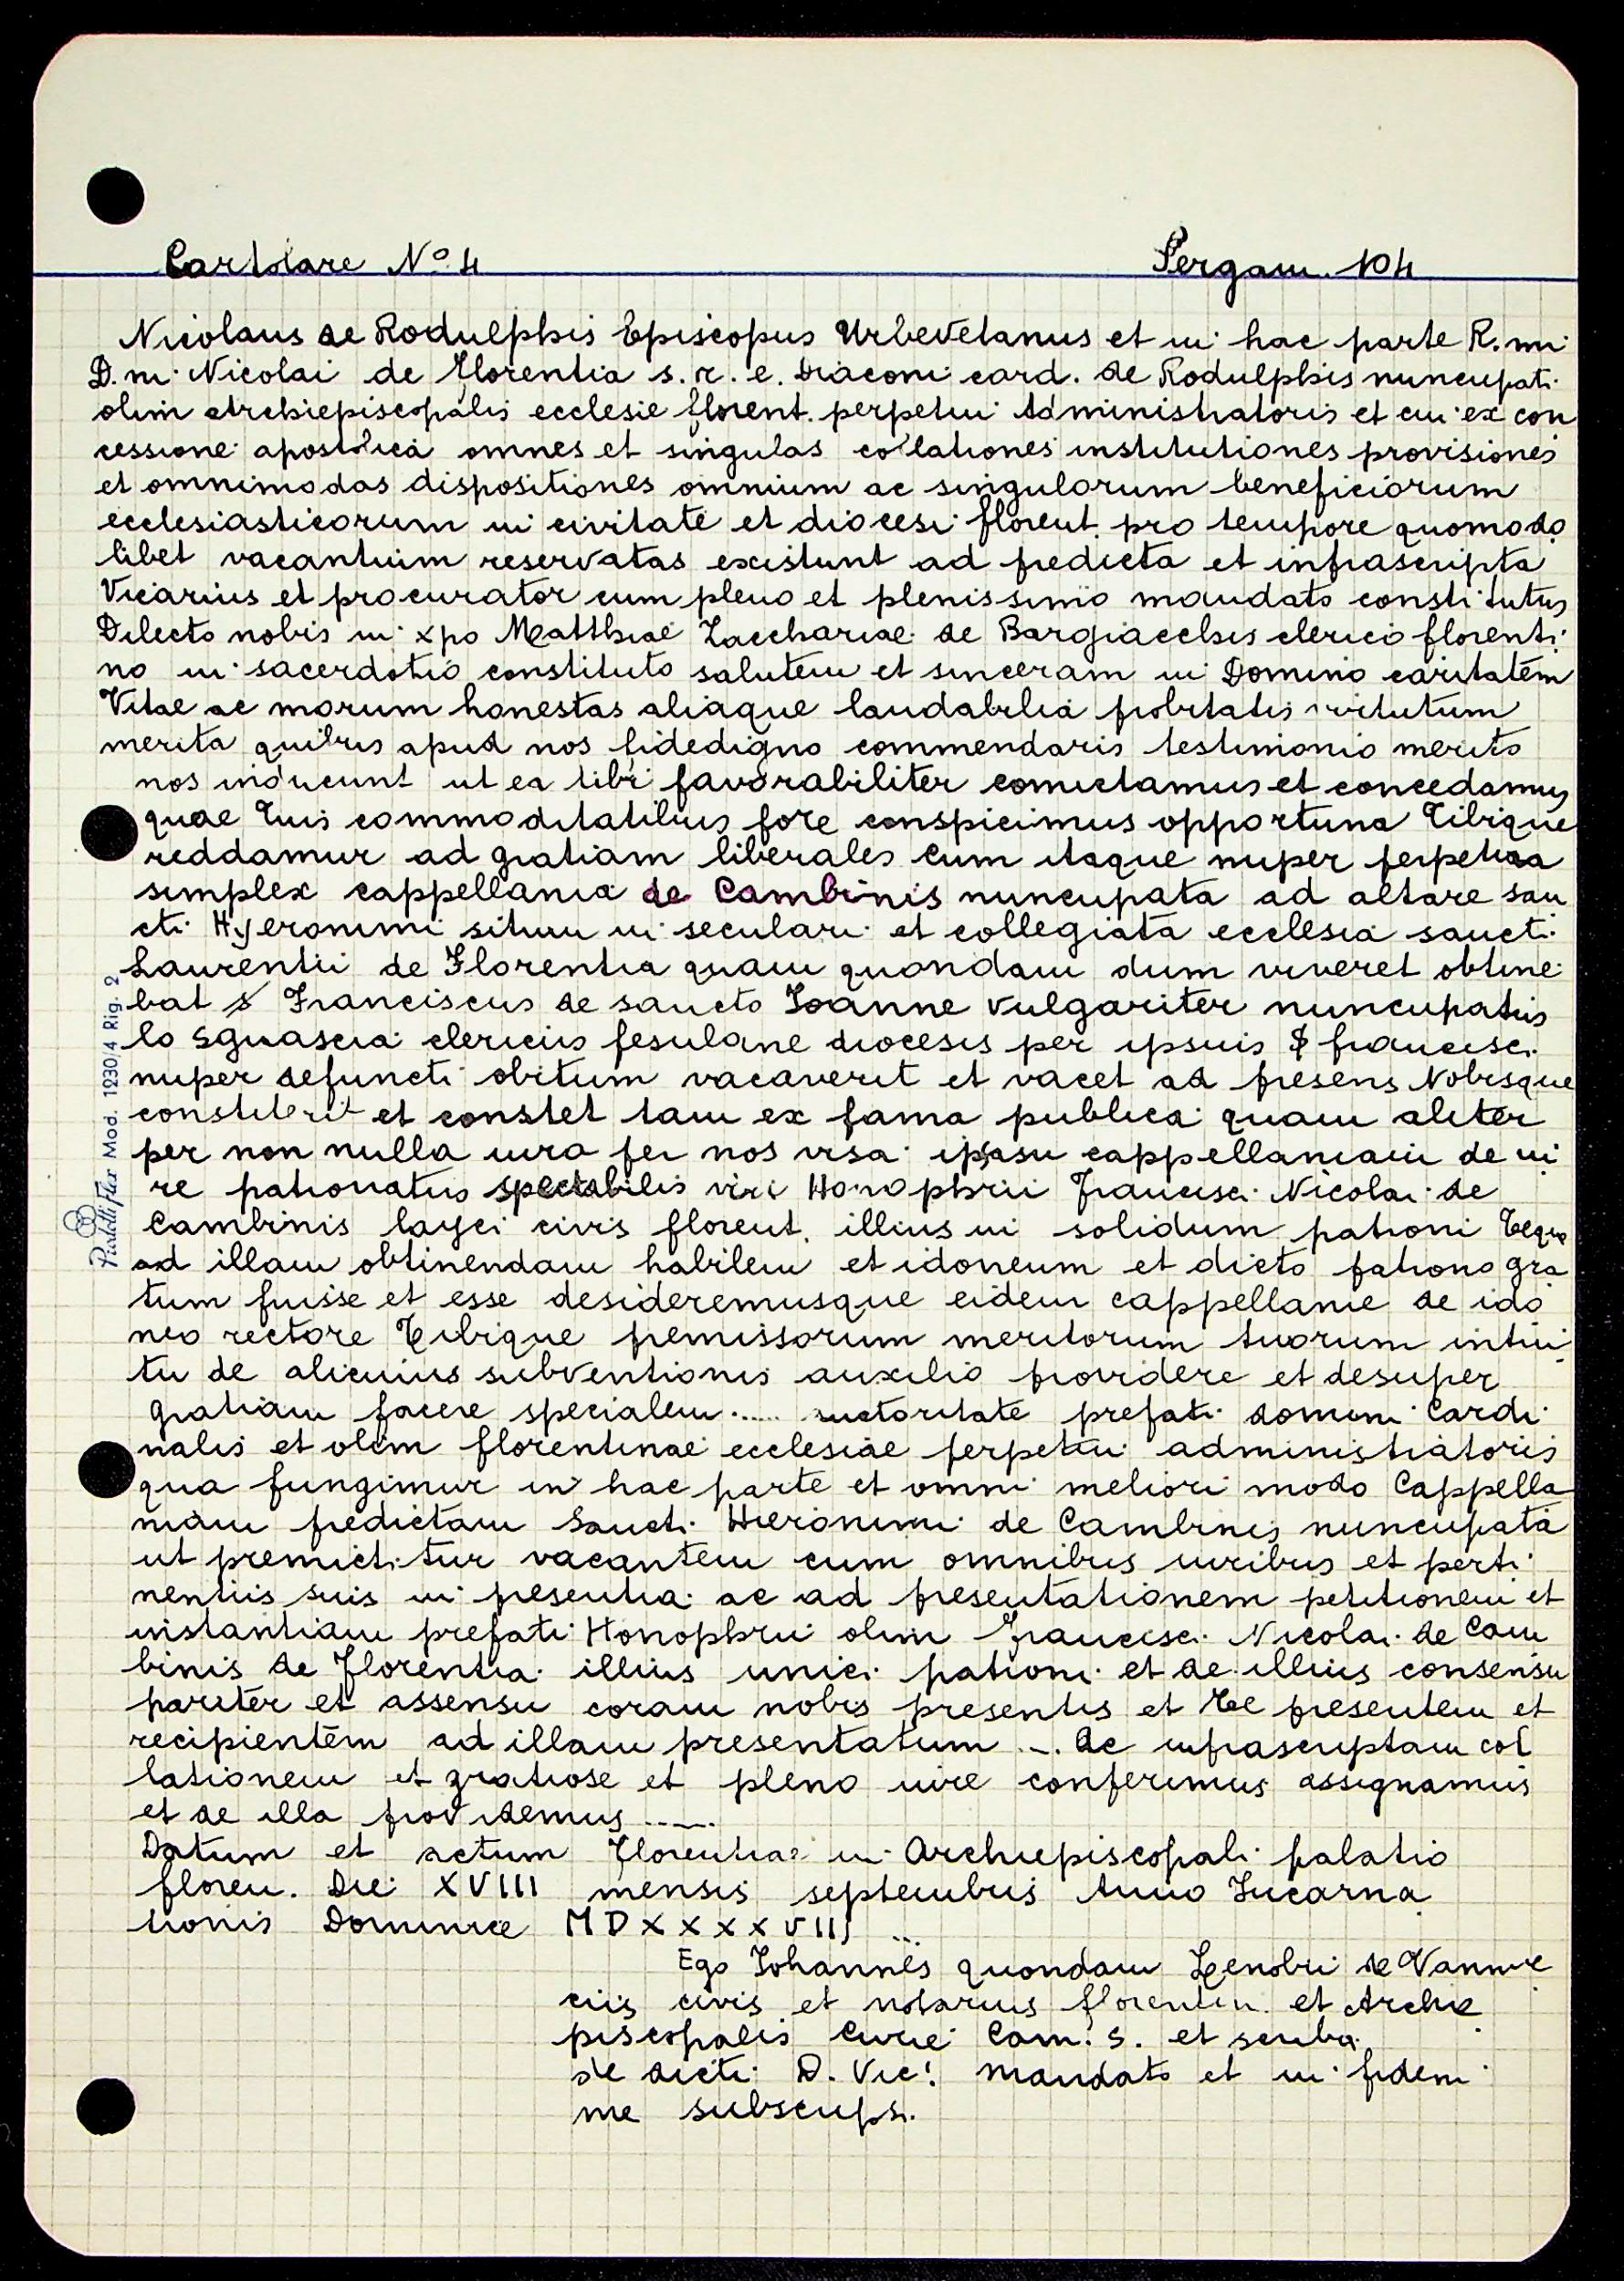 Cartolare Nº 4 Pergam. 104
Nicolaus de Rodulphis Episcopus Urbevetanus et in hac parte R.mi
D.ni Nicolai de Florentia s. r. e. Diaconi card. de Rodulphis nuncupati
olim Archiepiscopalis ecclesie florent. perpetui Administratoris et cui ex con
cessione apostolica omnes et singulas collationes institutiones provisiones
et omnimodas dispositiones omnium ac singulorum beneficiorum
ecclesiasticorum in civitate et diocesi florent. pro tempore quomodo
libet vacantium reservatas existunt ad predicta et infrascripta
Vicarius et procurator cum pleno et plenissimo mandato constitutus
Dilecto nobis in xpo Matthiae Zacchariae de Bargiacchis clerico florenti
no in sacerdotio constituto salutem et sinceram in Domino caritatem
Vitae ac morum honestas aliaque laudabilia probitatis virtutum
merita quibus apud nos fidedigno commendaris testimonio merito
nos inducunt ut ea tibi favorabiliter comictamus et concedamus
quae tuis commoditatibus fore conspicimus opportuna Tibique
reddamur ad gratiam liberales Cum itaque nuper perpetua
simplex cappellania de Cambinis nuncupata ad altare san
cti Hyeronimi situm in seculari et collegiata ecclesia sancti
Laurentii de Florentia quam quondam dum viveret obtine
bat S Franciscus de sancto Joanne vulgariter nuncupatus
lo sguascia clericus fesulane diocesis per ipsius S francisci
nuper defuncti obitum vacaverit et vacet ad presens Nobisque
constiterit et constet tam ex fama publica quam aliter
per non nulla iura per nos visa ipsam cappellaniam de iu
re patronatus spectabilis viri Honophrii Francisci Nicolai de
Cambinis layci civis florent. illius in solidum patroni Teque
ad illam obtinendam habilem et idoneum et dicto patrono gra
tum fuisse et esse desideremusque eidem cappellanie de ido
neo rectore Tibique premissorum meritorum tuorum intui
tu de alicuius subventionis auxilio providere et desuper
gratiam facere specialem ..... auctoritate prefati domini Cardi
nalis et olim florentinae ecclesiae perpetui administratoris
qua fungimur in hac parte et omni meliori modo Cappella
niam predictam Sancti Hieronimi de Cambinis nuncupata
ut premictitur vacantem cum omnibus iuribus et perti
nentiis suis in presentia ac ad presentationem petitionem et
instantiam prefati Honophrii olim Francisci Nicolai de Cam
binis de Florentia illius unici patroni et de illius consensu
pariter et assensu coram nobis presentis et Te presentem et
recipientem ad illam presentatum ... Ac infrascriptam col
lationem et gratiose et pleno iure conferimus assignamus
et de illa providemus .....
Datum et actum Florentiae in Archiepiscopali palatio
floren. Die XVIII mensis septembris Anno Incarna
tionis Dominice MDXXXXVIII ...
Ego Johannes quondam Zenobii de Vannuc
ciis civis et notarius florentin. et Archie
piscopalis Curie Com. s. et scriba
de dicti D. Vic. mandato et in fidem
me subscripsi.
Pratelli Flex Mod. 1230/4 Rig. 2